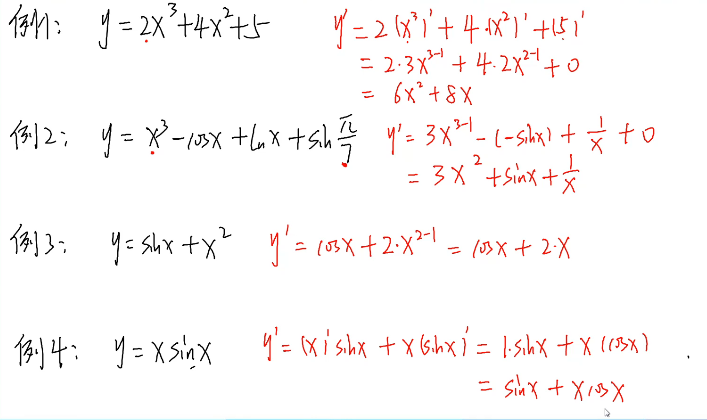 例1: y=2x³+4x²+5 y'=2(x³)'+4·(x²)'+(5)'
=2·3x³⁻¹+4·2x²⁻¹+0
=6x²+8x
例2: y=x³-cosx+lnx+sin π/7 y'=3x³⁻¹-(-sinx)+1/x+0
=3x²+sinx+1/x
例3: y=sinx+x² y'=cosx+2·x²⁻¹=cosx+2·x
例4: y=xsinx y'=(x)'sinx+x(sinx)'=1·sinx+x(cosx)
=sinx+xcosx